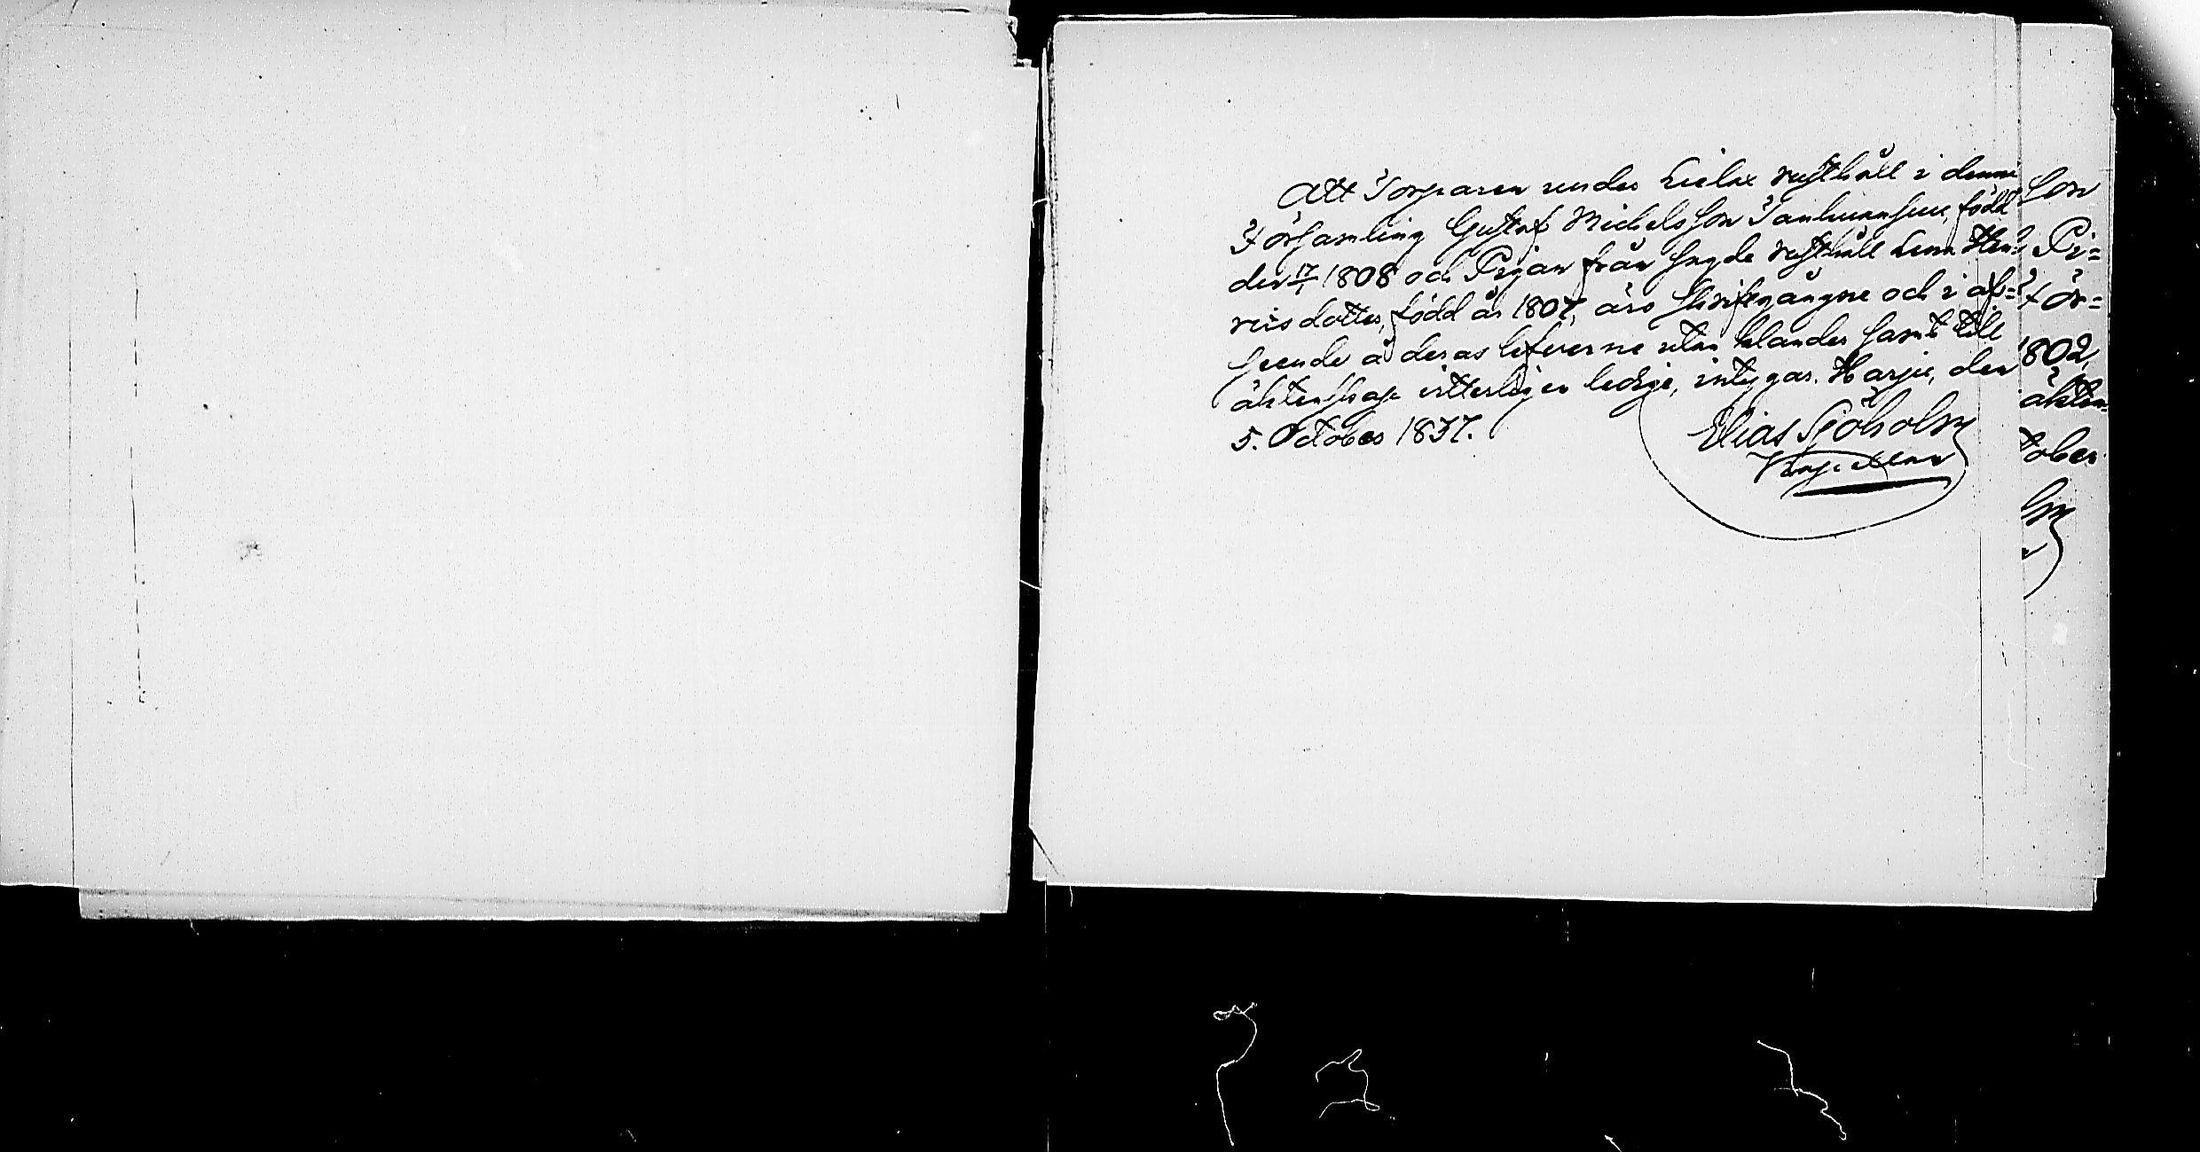 Att Torparen under Lielax rusthåll i denna
Församling Gustaf Michelsson född
den 17/1 1808 och Pigan från sagde rusthåll Lena Hen-
ricsdotter, född år 1807, äro skriftgångne och i af-
seende å deras lefverne utan klander samt till
äktenskap ytterligen ledige, intygar. Harju, den
5. October 1837.
Elias Sjöholm
son
Pi=
För=
1802,
äkten-
tober